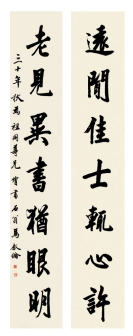 遠聞佳士輒心許
老見異書猶眼明
三十年 為 祖同尊兄 書 石翁馬敘倫